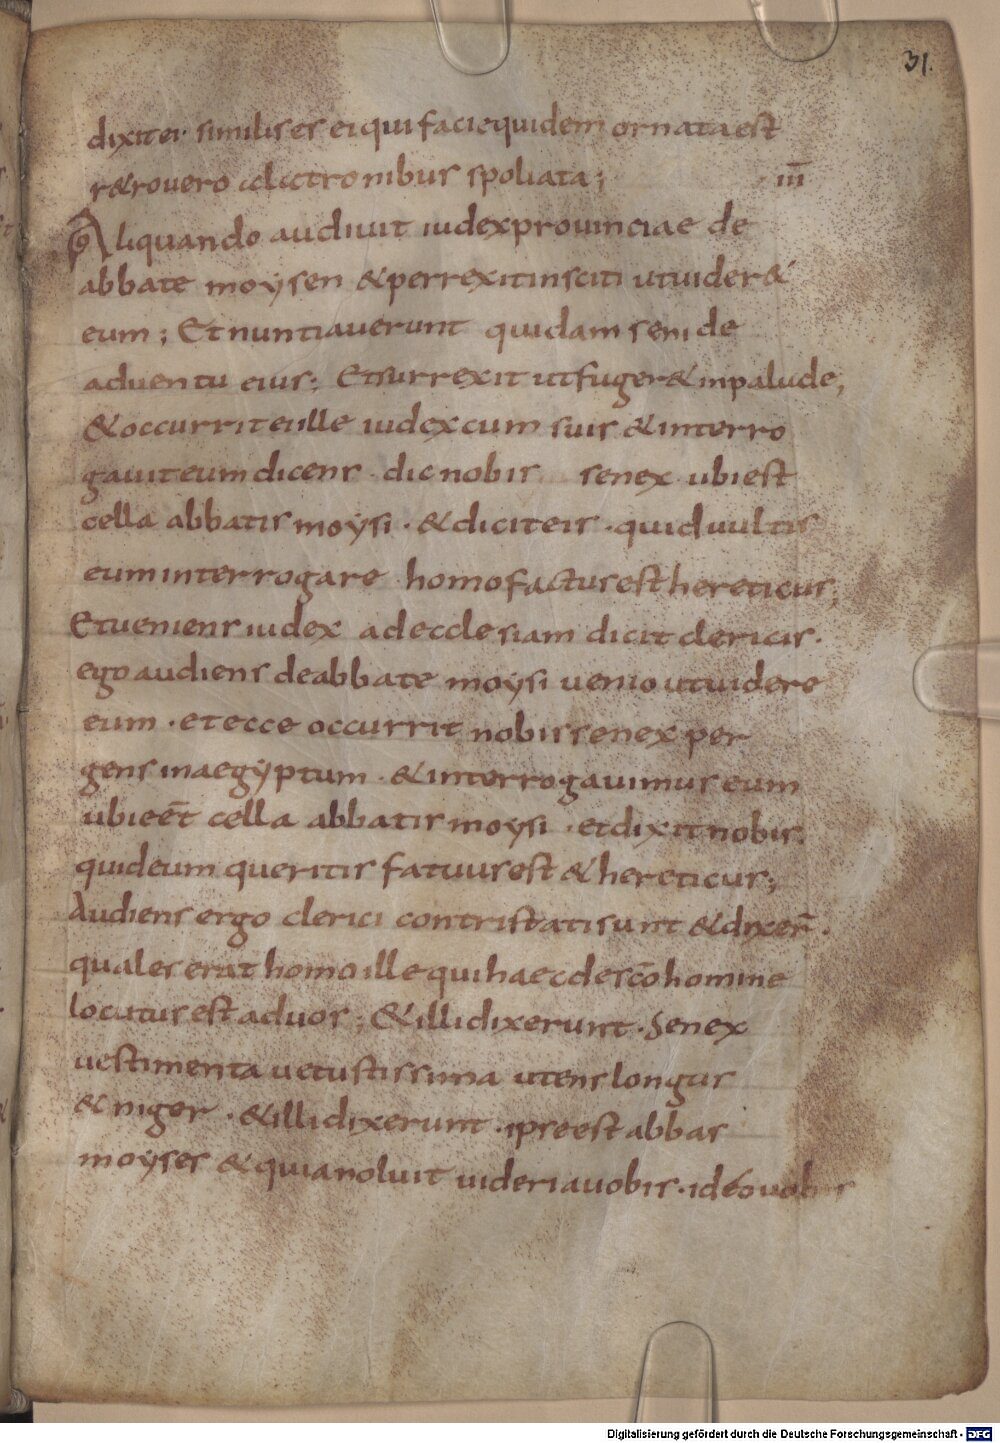 31.
dixit ei· similis es ei qui facie quidem ornata est
retro uero a latronibus spoliata; iii
Aliquando audiuit iudex prouinciae de
abbate moysen & perrexit in sciti ut uider&
eum; Et nuntiauerunt quidam seni de
aduentu eius; Et surrexit ut fuger& in palude;
& occurrit ei ille iudex cum suis & interro
gauit eum dicens · dic nobis senex ubi est
cella abbatis moysi · & dicit eis · quid uultis
eum interrogare homo factus est hereticus;
Et ueniens iudex ad ecclesiam dicit clericis·
ego audiens de abbate moysi uenio ut uidere
eum · et ecce occurrit nobis senex per
gens in aegyptum · & interrogauimus eum
ubi eēt cella abbatis moysi · et dixit nobis·
quid eum queritis fatuus est & hereticus;
Audiens ergo clerici contristati sunt & dixer̄·
quales erat homo ille qui haec de sc̄o homine
locutus est ad uos; & illi dixerunt · Senex
uestimenta uetustissima utens longus
& niger · & illi dixerunt · ipse est abbas
moyses & quia noluit uideri a uobis · ideo uobis
Digitalisierung gefördert durch die Deutsche Forschungsgemeinschaft - DFG